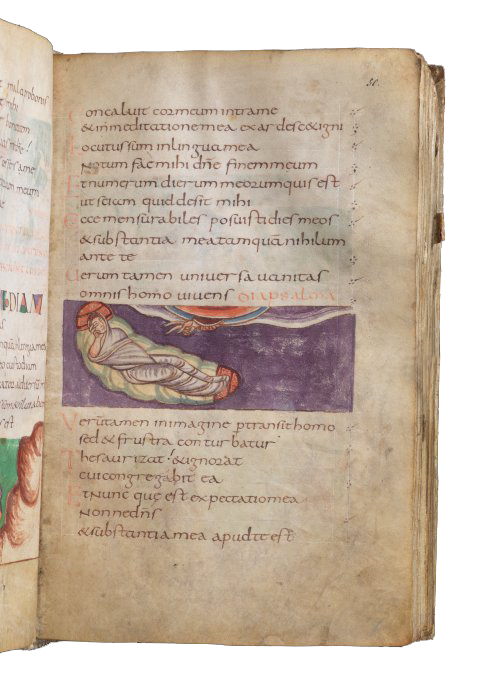 50.
Concaluit cor meum intra me
& in meditatione mea exardesc& igni
Locutus sum in lingua mea
Notum fac mihi dn̄e finem meum
Et numerum dierum meorum quis est
ut sciam quid desit mihi
Ecce mensurabiles posuisti dies meos
& substantia mea tamquā nihilum
ante te
Uerum tamen universa vanitas
omnis homo vivens diapsalma
Verūtamen in imagine ptransit homo
sed & frustra conturbatur
Thesaurizat & ignorat
cui congregabit ea
Et nunc quę est expectatio mea
Nonne dn̄s
& substantia mea apud te est